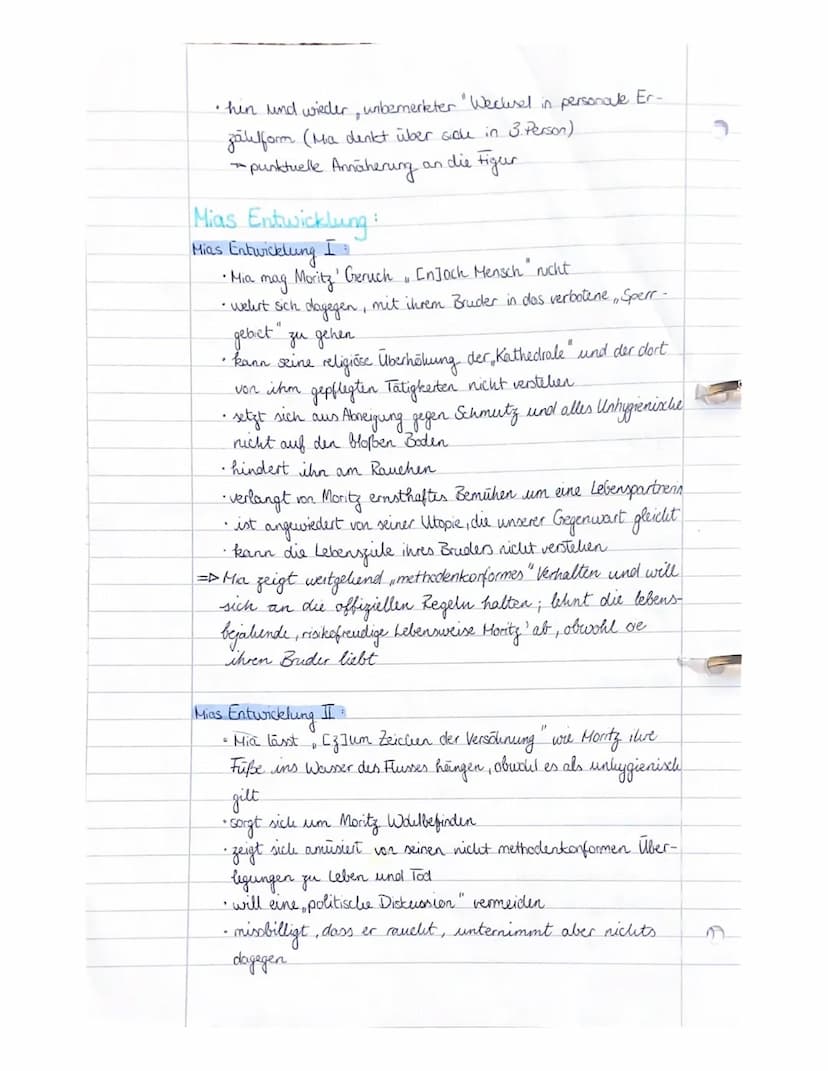 • hin und wieder „unbemerkter“ Wechsel in personale Er-
zählform (Mia denkt über sich in 3. Person)
→ punktuelle Annäherung an die Figur
Mias Entwicklung:
Mias Entwicklung I:
• Mia mag Moritz' Geruch „[n]ach Mensch“ nicht
• wehrt sich dagegen, mit ihrem Bruder in das verbotene „Sperr-
gebiet“ zu gehen
• kann seine religiöse Überhöhung der „Kathedrale“ und der dort
von ihm gepflegten Tätigkeiten nicht verstehen
• setzt sich aus Abneigung gegen Schmutz und alles Unhygienische
nicht auf den bloßen Boden
• hindert ihn am Rauchen
• verlangt von Moritz ernsthaftes Bemühen um eine Lebenspartnerin
• ist angewiedert von seiner Utopie, die unserer Gegenwart gleicht
• kann die Lebensziele ihres Bruders nicht verstehen
=> Mia zeigt weitgehend „methodenkonformes“ Verhalten und will
sich an die offiziellen Regeln halten; lehnt die lebens-
bejahende, risikofreudige Lebensweise Moritz' ab, obwohl sie
ihren Bruder liebt
Mias Entwicklung II:
• Mia lässt „[z]um Zeichen der Versöhnung“ wie Moritz ihre
Füße ins Wasser des Flusses hängen, obwohl es als unhygienisch
gilt
• sorgt sich um Moritz Wohlbefinden
• zeigt sich amüsiert von seinen nicht methodenkonformen Über-
legungen zu Leben und Tod
• will eine „politische Diskussion“ vermeiden
• missbilligt, dass er raucht, unternimmt aber nichts
dagegen